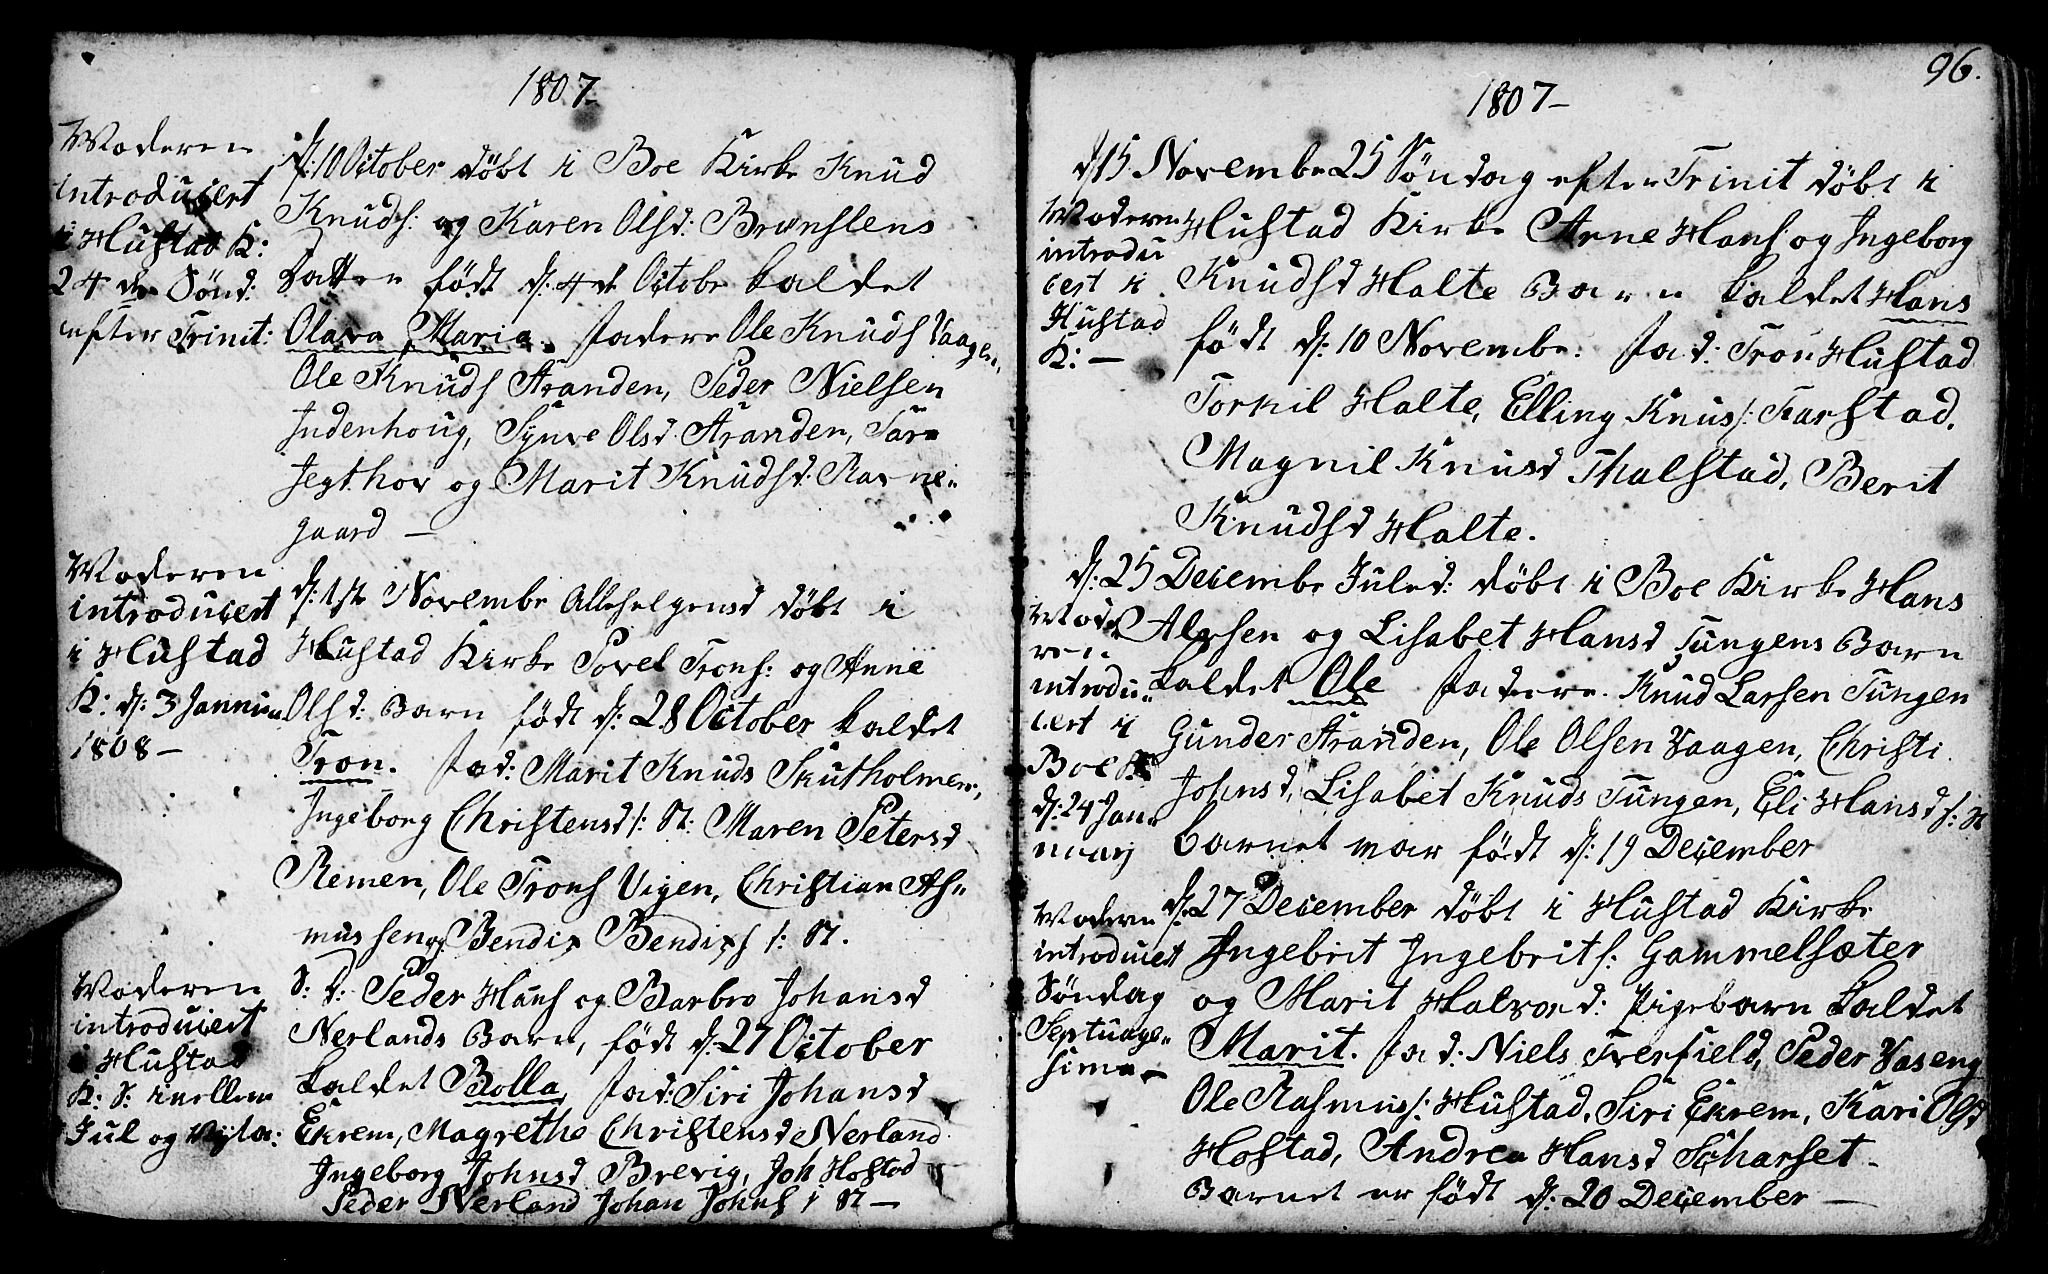 1807
Moderen
introducert
i Hustad K:
24de Sönd:
efter Trinit:
d: 10 October döbt i Boe Kirke Knud
Knuds: og Karen Olsd:
Datter födt d: 4de Octobr kaldet
Olava Maria. Fadere Ole Knuds Vaagen,
Ole Knuds Stranden, Peder Nielsen
Indenhoug, Synve Olsd: Stranden,
og Marit Knudsd: Ravne„
gaard —
Moderen
introducert
i Hustad
K: d: 3 Januar
1808 —
d: 1ste Novembr Allehelgensd döbt i
Hustad Kirke Povel Trons: og Anne
Olsd: Barn födt d: 28 October kaldet
Tron. Fad: Marit Knuds Skutholmen,
Ingeborg Christensd S: St: Maren Petersd
Remen, Ole Trons Vigen, Christian As„
mussen og Bendix Bendixs S: St.
Moderen
introducert
i Hustad
K: S: imellem
Jul og Nytar:
S: D: Peder Hans og Barbro Johansd
Nerlands Barn, födt d: 27 October
kaldet Bolla, Fad: Siri Johansd
Ekrem, Magrethe Christensd Nerland
Ingeborg Johnsd Brevig, Joh Hostad
Peder Nerland Johan Johns S St —
96.
1807 —
d 15 Novembr 25 Söndag efter Trinit döbt i
Moderen
introdu
cert i
Hustad
K: —
Hustad Kirke Arne Hans og Ingeborg
Knudsd Halte Barn kaldet Hans
födt d: 10 Novembr: Fad: Tron Hustad
Torkil Halte, Elling Knus: Farstad,
Magnil Knusd Thalstad, Berit
Knudsd Halte.
d: 25 Decembr Juled: döbt i Boe Kirke Hans
Mode
ren
introdu„
cert i
Boe K
d: 24 Jan„
nuarj
Alexsen og Lisabet Hansd Tungens Barn
kaldet Ole Fadere Knud Larsen Tungen
Gunder Stranden, Ole Olsen Vaagen, Christi
Johnsd, Lisabet Knuds Tungen, Eli Hansd S: St
barnet var födt d: 19 December
Moderen
introducert
Söndag
Septuage„
sima —
d: 27 December döbt i Hustad Kirke
Ingebrit Ingebrits: Gammelsæter
og Marit Halvord: Pigebarn kaldet
Marit. Fad: Niels Tverfield, Peder Vaseng
Ole Rasmus: Hustad, Siri Ekrem, Kari Olsd
Hostad, Andrea Hansd Scharset —
Barnet er födt d: 20 December —